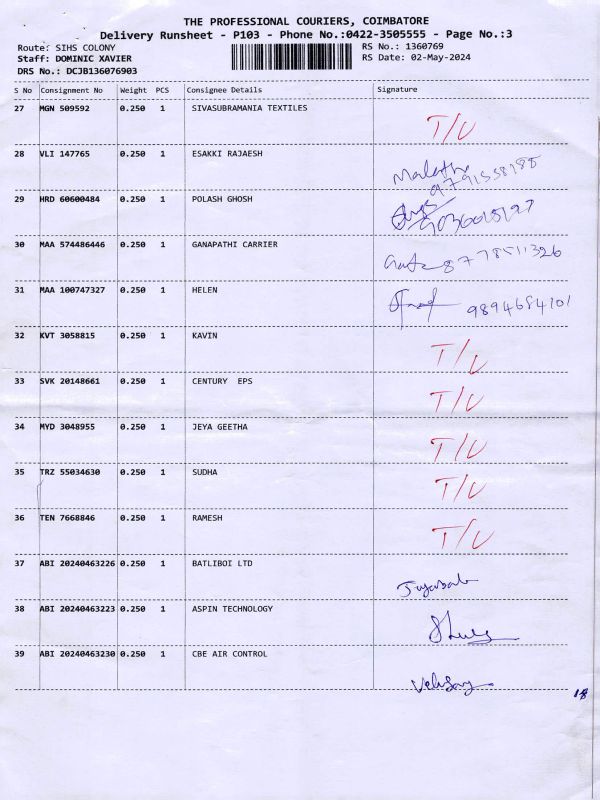 THE PROFESSIONAL COURIERS, COIMBATORE
Delivery Runsheet - P103 - Phone No.:0422-3505555 - Page No.:3
Route: SIHS COLONY RS No.: 1360769
Staff: DOMINIC XAVIER RS Date: 02-May-2024
DRS No.: DCJB136076903
S No Consignment No Weight PCS Consignee Details Signature
27 MGN 509592 0.250 1 SIVASUBRAMANIA TEXTILES T/U
28 VLI 147765 0.250 1 ESAKKI RAJAESH
9791558185
29 HRD 60600484 0.250 1 POLASH GHOSH
30 MAA 574486446 0.250 1 GANAPATHI CARRIER 8778511326
31 MAA 100747327 0.250 1 HELEN 9894684101
32 KVT 3058815 0.250 1 KAVIN T/U
33 SVK 20148661 0.250 1 CENTURY EPS T/U
34 MYD 3048955 0.250 1 JEYA GEETHA T/U
35 TRZ 55034630 0.250 1 SUDHA T/U
36 TEN 7668846 0.250 1 RAMESH T/U
37 ABI 20240463226 0.250 1 BATLIBOI LTD
38 ABI 20240463223 0.250 1 ASPIN TECHNOLOGY
39 ABI 20240463230 0.250 1 CBE AIR CONTROL